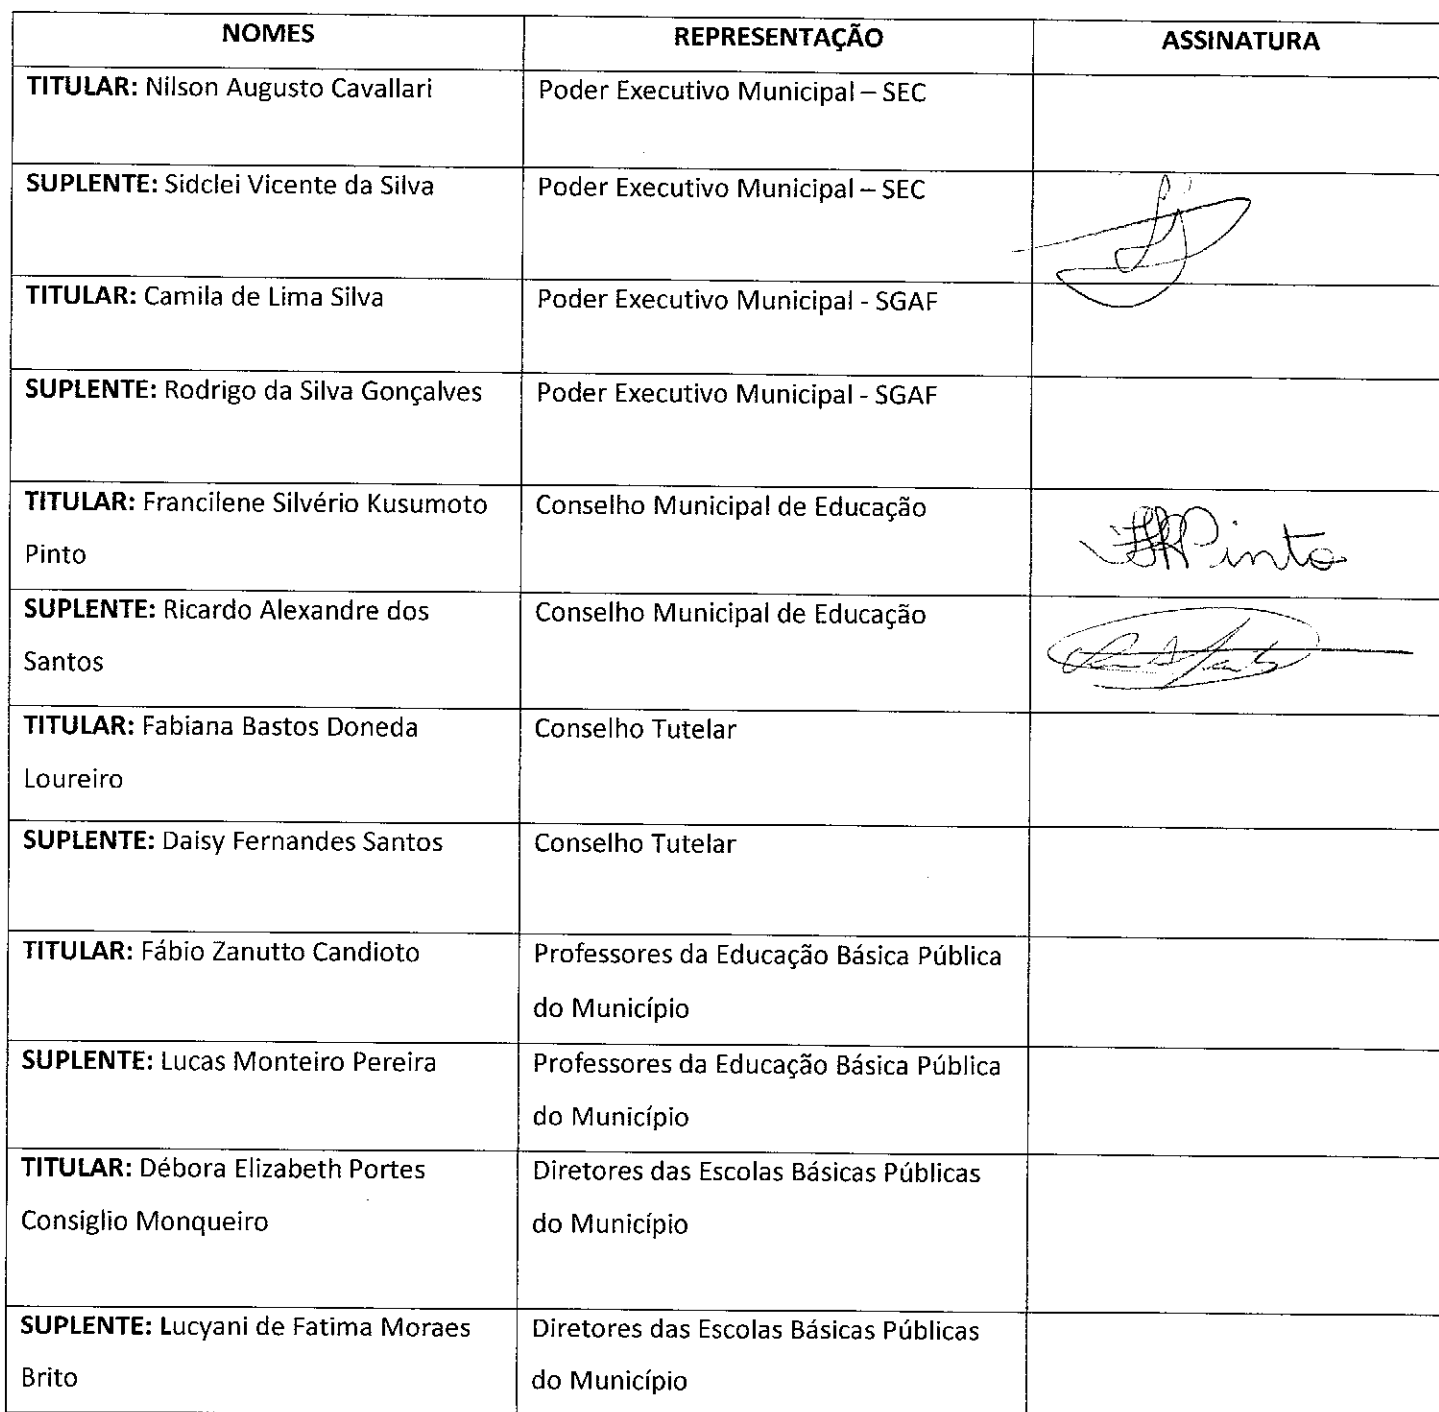 NOMES REPRESENTAÇÃO ASSINATURA
TITULAR: Nilson Augusto Cavallari Poder Executivo Municipal – SEC
SUPLENTE: Sidclei Vicente da Silva Poder Executivo Municipal – SEC
TITULAR: Camila de Lima Silva Poder Executivo Municipal - SGAF
SUPLENTE: Rodrigo da Silva Gonçalves Poder Executivo Municipal - SGAF
TITULAR: Francilene Silvério Kusumoto Conselho Municipal de Educação
Pinto Pinto
SUPLENTE: Ricardo Alexandre dos Conselho Municipal de Educação
Santos
TITULAR: Fabiana Bastos Doneda Conselho Tutelar
Loureiro
SUPLENTE: Daisy Fernandes Santos Conselho Tutelar
TITULAR: Fábio Zanutto Candioto Professores da Educação Básica Pública
do Município
SUPLENTE: Lucas Monteiro Pereira Professores da Educação Básica Pública
do Município
TITULAR: Débora Elizabeth Portes Diretores das Escolas Básicas Públicas
Consiglio Monqueiro do Município
SUPLENTE: Lucyani de Fatima Moraes Diretores das Escolas Básicas Públicas
Brito do Município